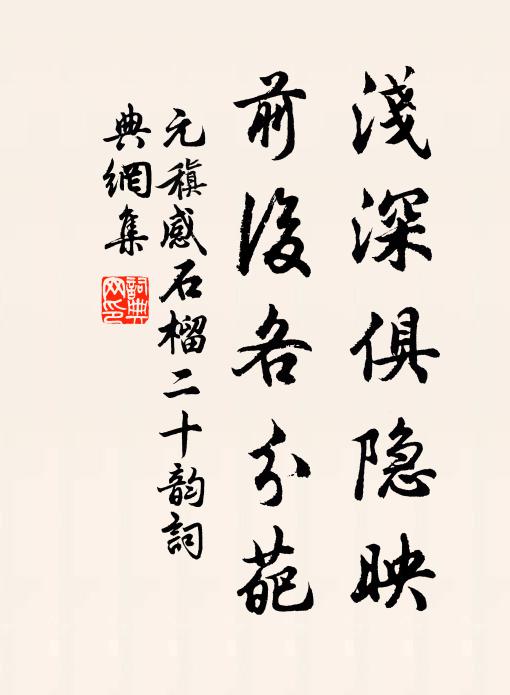 淺深俱隐映
前後各分葩
元稹感石榴二十韵詞
典網集
詞典网印